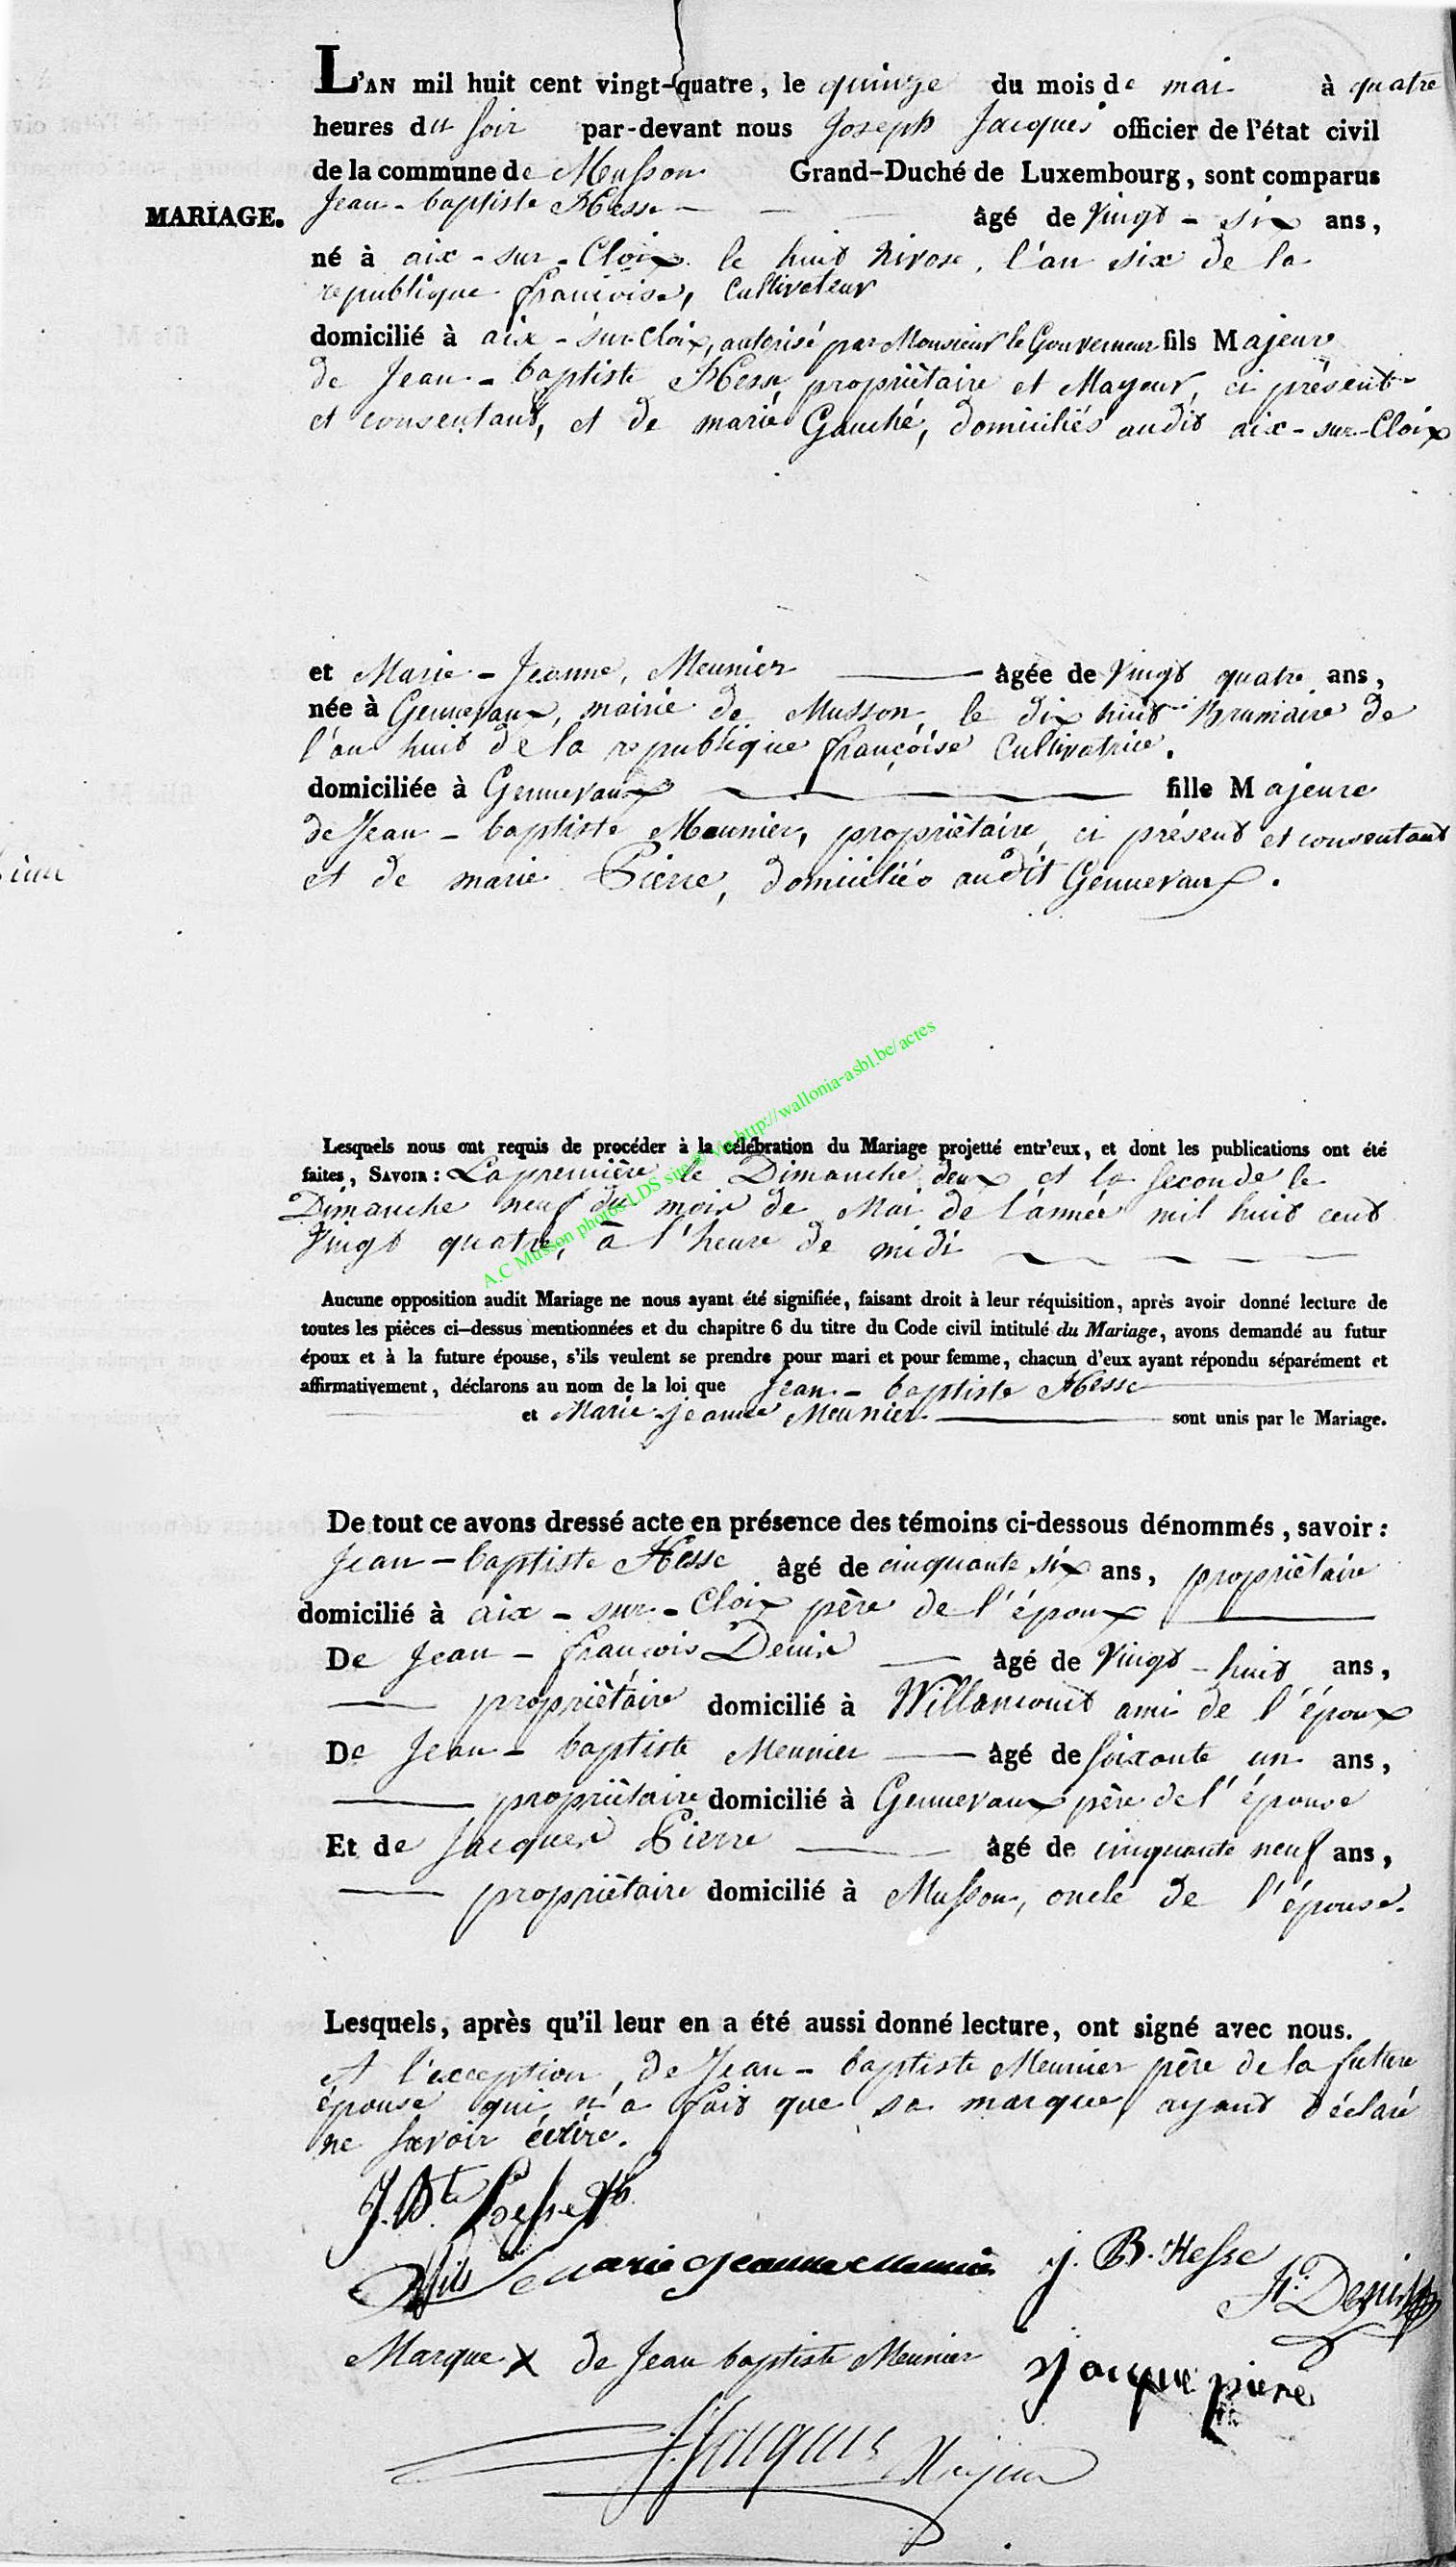 L'AN mil huit cent vingt-quatre, le quinze du mois de mai à quatre
heures du soir par-devant nous Joseph Jacques officier de l'état civil
de la commune de Musson Grand-Duché de Luxembourg, sont comparus
MARIAGE. Jean-baptiste Hesse âgé de vingt-six ans,
né à aix-sur-Cloix le huit nivose, l'an six de la
republique françoise, Cultivateur
domicilié à aix-sur-cloix, autorisé par Monsieur le Gouverneur fils Majeur
de Jean-baptiste Hesse propriètaire et Mayeur, ci présent
et consentant, et de marie Gauché, domiciliés audit aix-sur-Cloix
et Marie-Jeanne, Meunier âgée de vingt quatre ans,
née à Gennevaux, mairie de Musson, le dix huit Brumaire de
l'an huit de la republique françoise Cultivatrice.
domiciliée à Gennevaux fille Majeure
de Jean-baptiste Meunier, propriètaire, ci présent et consentant
et de marie Pierre, domiciliés audit Gennevaux.
A.C Musson photos LDS site via http://wallonia-asbl.be/actes
Lesquels nous ont requis de procéder à la célébration du Mariage projetté entr'eux, et dont les publications ont été
faites, SAVOIR : La première le Dimanche deux et la seconde le
Dimanche neuf du mois de Mai de l'année mil huit cent
vingt quatre, à l'heure de midi
Aucune opposition audit Mariage ne nous ayant été signifiée, faisant droit à leur réquisition, après avoir donné lecture de
toutes les pièces ci-dessus mentionnées et du chapitre 6 du titre du Code civil intitulé du Mariage, avons demandé au futur
époux et à la future épouse, s'ils veulent se prendre pour mari et pour femme, chacun d'eux ayant répondu séparément et
affirmativement, déclarons au nom de la loi que Jean-baptiste Hesse
et Marie-jeanne Meunier sont unis par le Mariage.
De tout ce avons dressé acte en présence des témoins ci-dessous dénommés, savoir :
Jean-baptiste Hesse âgé de cinquante six ans, propriètaire
domicilié à aix-sur-Cloix père de l'époux
De Jean-françois Denis âgé de vingt-huit ans,
propriètaire domicilié à Willancourt ami de l'époux
De Jean-baptiste Meunier âgé de soixante un ans,
propriètaire domicilié à Gennevaux père de l'épouse
Et de Jacques Pierre âgé de cinquante neuf ans,
propriètaire domicilié à Musson, oncle de l'épouse.
Lesquels, après qu'il leur en a été aussi donné lecture, ont signé avec nous.
et l'exception, de Jean-baptiste Meunier père de la future
épouse qui n'a fait que sa marque, ayant déclaré
ne savoir écrire.
J. Bte hesse
fils marie jeanne meunier j. B. Hesse
Denis
Marque X de Jean baptiste Meunier Jacque pierre
J Jacques Mayeur